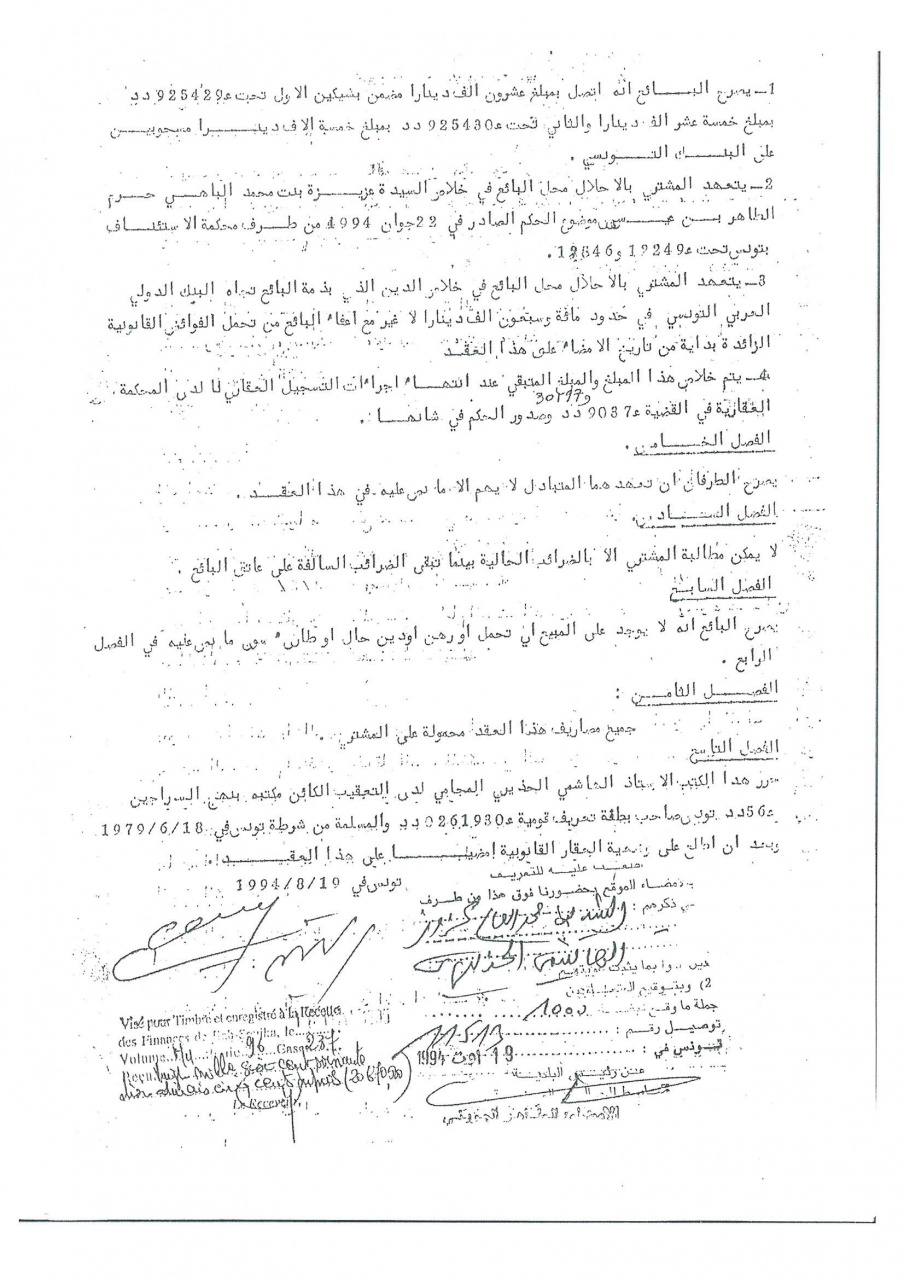 1ـ يصرح البـــائع انه اتصل بمبلغ عشرون الف دينارا مضمن بشيكين الاول تحت ع925429ـدد
بمبلغ خمسة عشر الف دينارا والثاني تحت ع925430ـدد بمبلغ خمسة الاف دينــــرا مسحوبيــن
على البنــك التــونسي .
2ـ يتعهد المشتري بالاحلال محل البائع في خلاص السيدة عزيـزة بنت محمد الباهـــي حــرم
الطاهر بــن موضوع الحكم الصادر في 22 جوان 1994 من طرف محكمة الاستئنــاف
بتونس تحت ع19249 و12646 .
3ـ يتعهد المشتري بالاحلال محل البائع في خلاص الدين الذي بذمة البائع تجاه البنك الدولي
العربي التونسي في حدود مائة وسبعون الف دينارا لا غير مع اعفاء البائع من تحمل الفوائض القانونية
الزائدة بداية من تاريخ الامضاء على هذا العقـد
4ـ يتم خلاص هذا المبلغ والمبلغ المتبقي عند انتهـــاء اجراءات التسجيل العقاري لدى المحكمة
العقارية في القضية ع9037ـدد وصدور الحكم في شانهــا .
الفصل الخــامس .
يصرح الطرفان ان تعهدهما المتبادل لا يهم الا ما نص عليه في هذا العقــد .
الفصل الســـادس.
لا يمكن مطالبة المشتري الا بالضرائب الحالية بينما تبقى الضرائب السالفة على عاتق البائع .
الفصل السابـع
يصرح البائع انه لا يوجد على المبيع اي تحمل او رهن اودين حال او طارئ سوى ما نص عليه في الفصل
الرابع .
الفصــل الثامــن :
جميع مصاريف هذا العقد محمولة على المشتري .
الفصل التاسع
حرر هذا الكتب الاستاذ الهاشمي الحذيري المحامي لدى التعقيب الكائن مكتبه بنهج السراجين
ع56ـدد تونس صاحب بطاقة تعريف قومية ع0261930ـدد والمسلمة من شرطة تونس في 1979/6/18
وبعد ان اطلع على وضعية العقار القانونية امضينــــا على هذا العقـــد.
تونس في 1994/8/19
عليه للتعريف
بامضاء الموقع بحضورنا فوق هذا من طرف
ذكرهم :
الهاشمي الحذيري
2) وبتوقيع
جملة ما
1000
توصيل رقم :
تونس في : 19 اوت 1994
عن رئيس البلدية
Visé pour Timbre et enregistré à la Recette
des Finances de Bab-Souika, le
Volume Série 96 Case 237
Reçu
Le Receveur